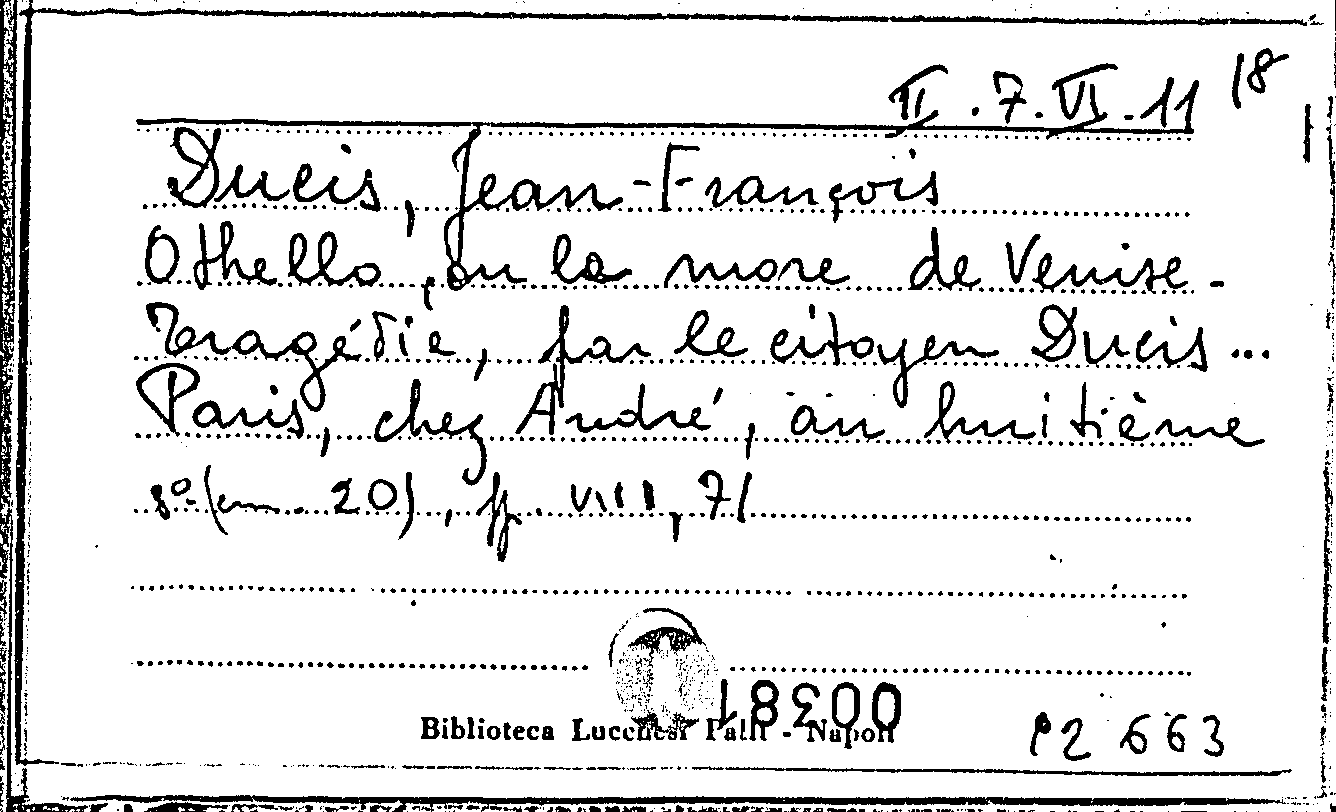 II.7.VI.11 18
Ducis, Jean-François
Othello, ou la more de Venise -
Tragédie, par le citoyen Ducis...
Paris, chez André, an huitième
8º (cm. 20), pp. VIII, 71
00381
Biblioteca Lucchesi Palli - Napoli
P2 663